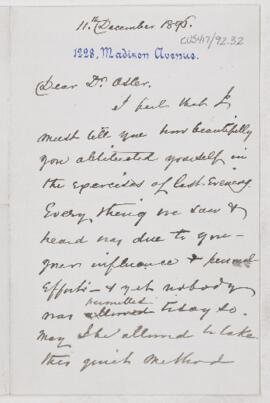 11.th December 1896.
CUS417/92.32
1228, Madison Avenue.
Dear Dr. Osler.
I feel that I
must tell you how beautifully
you obliterated yourself in
the exercises of last Evening.
Every thing we saw &
heard was due to you –
your influence & personal
efforts – & yet nobody
permitted
was allowed to say so.
May I be allowed to take
this quiet method